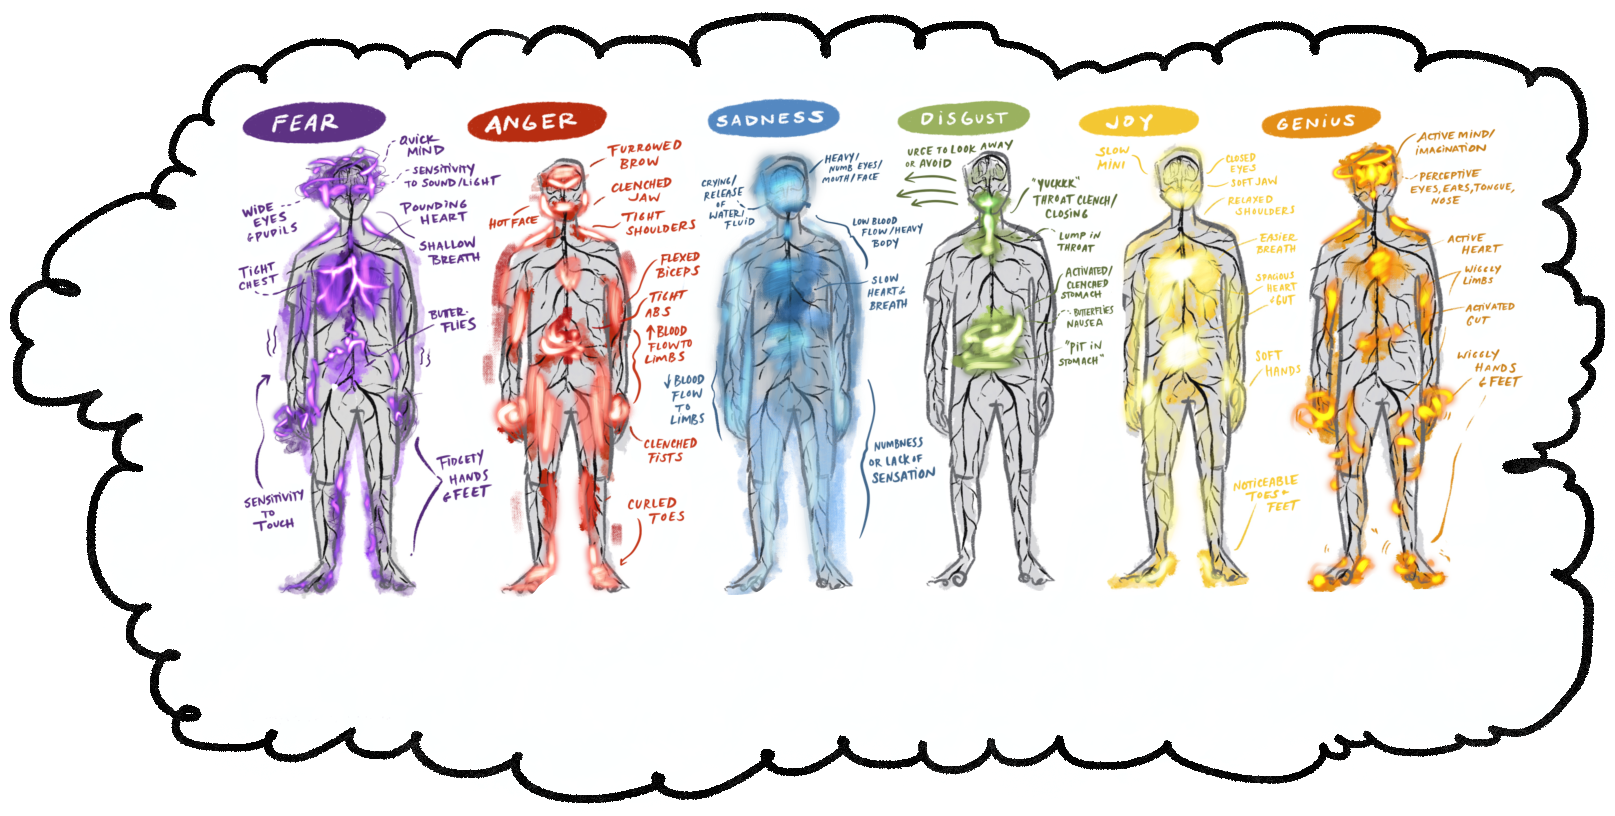 FEAR
QUICK
MIND
SENSITIVITY
TO SOUND/LIGHT
WIDE
EYES
&PUPILS
POUNDING
HEART
SHALLOW
BREATH
TIGHT
CHEST
BUTER-
FLIES
SENSITIVITY
TO
TOUCH
FIDGETY
HANDS
& FEET
ANGER
FURROWED
BROW
CLENCHED
JAW
HOT FACE
TIGHT
SHOULDERS
FLEXED
BICEPS
TIGHT
ABS
↑ BLOOD
FLOW TO
LIMBS
CLENCHED
FISTS
CURLED
TOES
SADNESS
HEAVY/
NUMB EYES/
MOUTH/FACE
CRYING/
RELEASE
OF
WATER/
FLUID
LOW BLOOD
FLOW/HEAVY
BODY
SLOW
HEART &
BREATH
↓ BLOOD
FLOW
TO
LIMBS
NUMBNESS
OR LACK OF
SENSATION
DISGUST
URGE TO LOOK AWAY
OR AVOID
"YUCKKK"
THROAT CLENCH/
CLOSING
LUMP IN
THROAT
ACTIVATED/
CLENCHED
STOMACH
BUTTERFLIES
NAUSEA
"PIT IN
STOMACH"
JOY
SLOW
MIND
CLOSED
EYES
SOFT JAW
RELAXED
SHOULDERS
EASIER
BREATH
SPACIOUS
HEART
& GUT
SOFT
HANDS
NOTICEABLE
TOES +
FEET
GENIUS
ACTIVE MIND/
IMAGINATION
PERCEPTIVE
EYES, EARS, TONGUE,
NOSE
ACTIVE
HEART
WIGGLY
LIMBS
ACTIVATED
GUT
WIGGLY
HANDS
& FEET